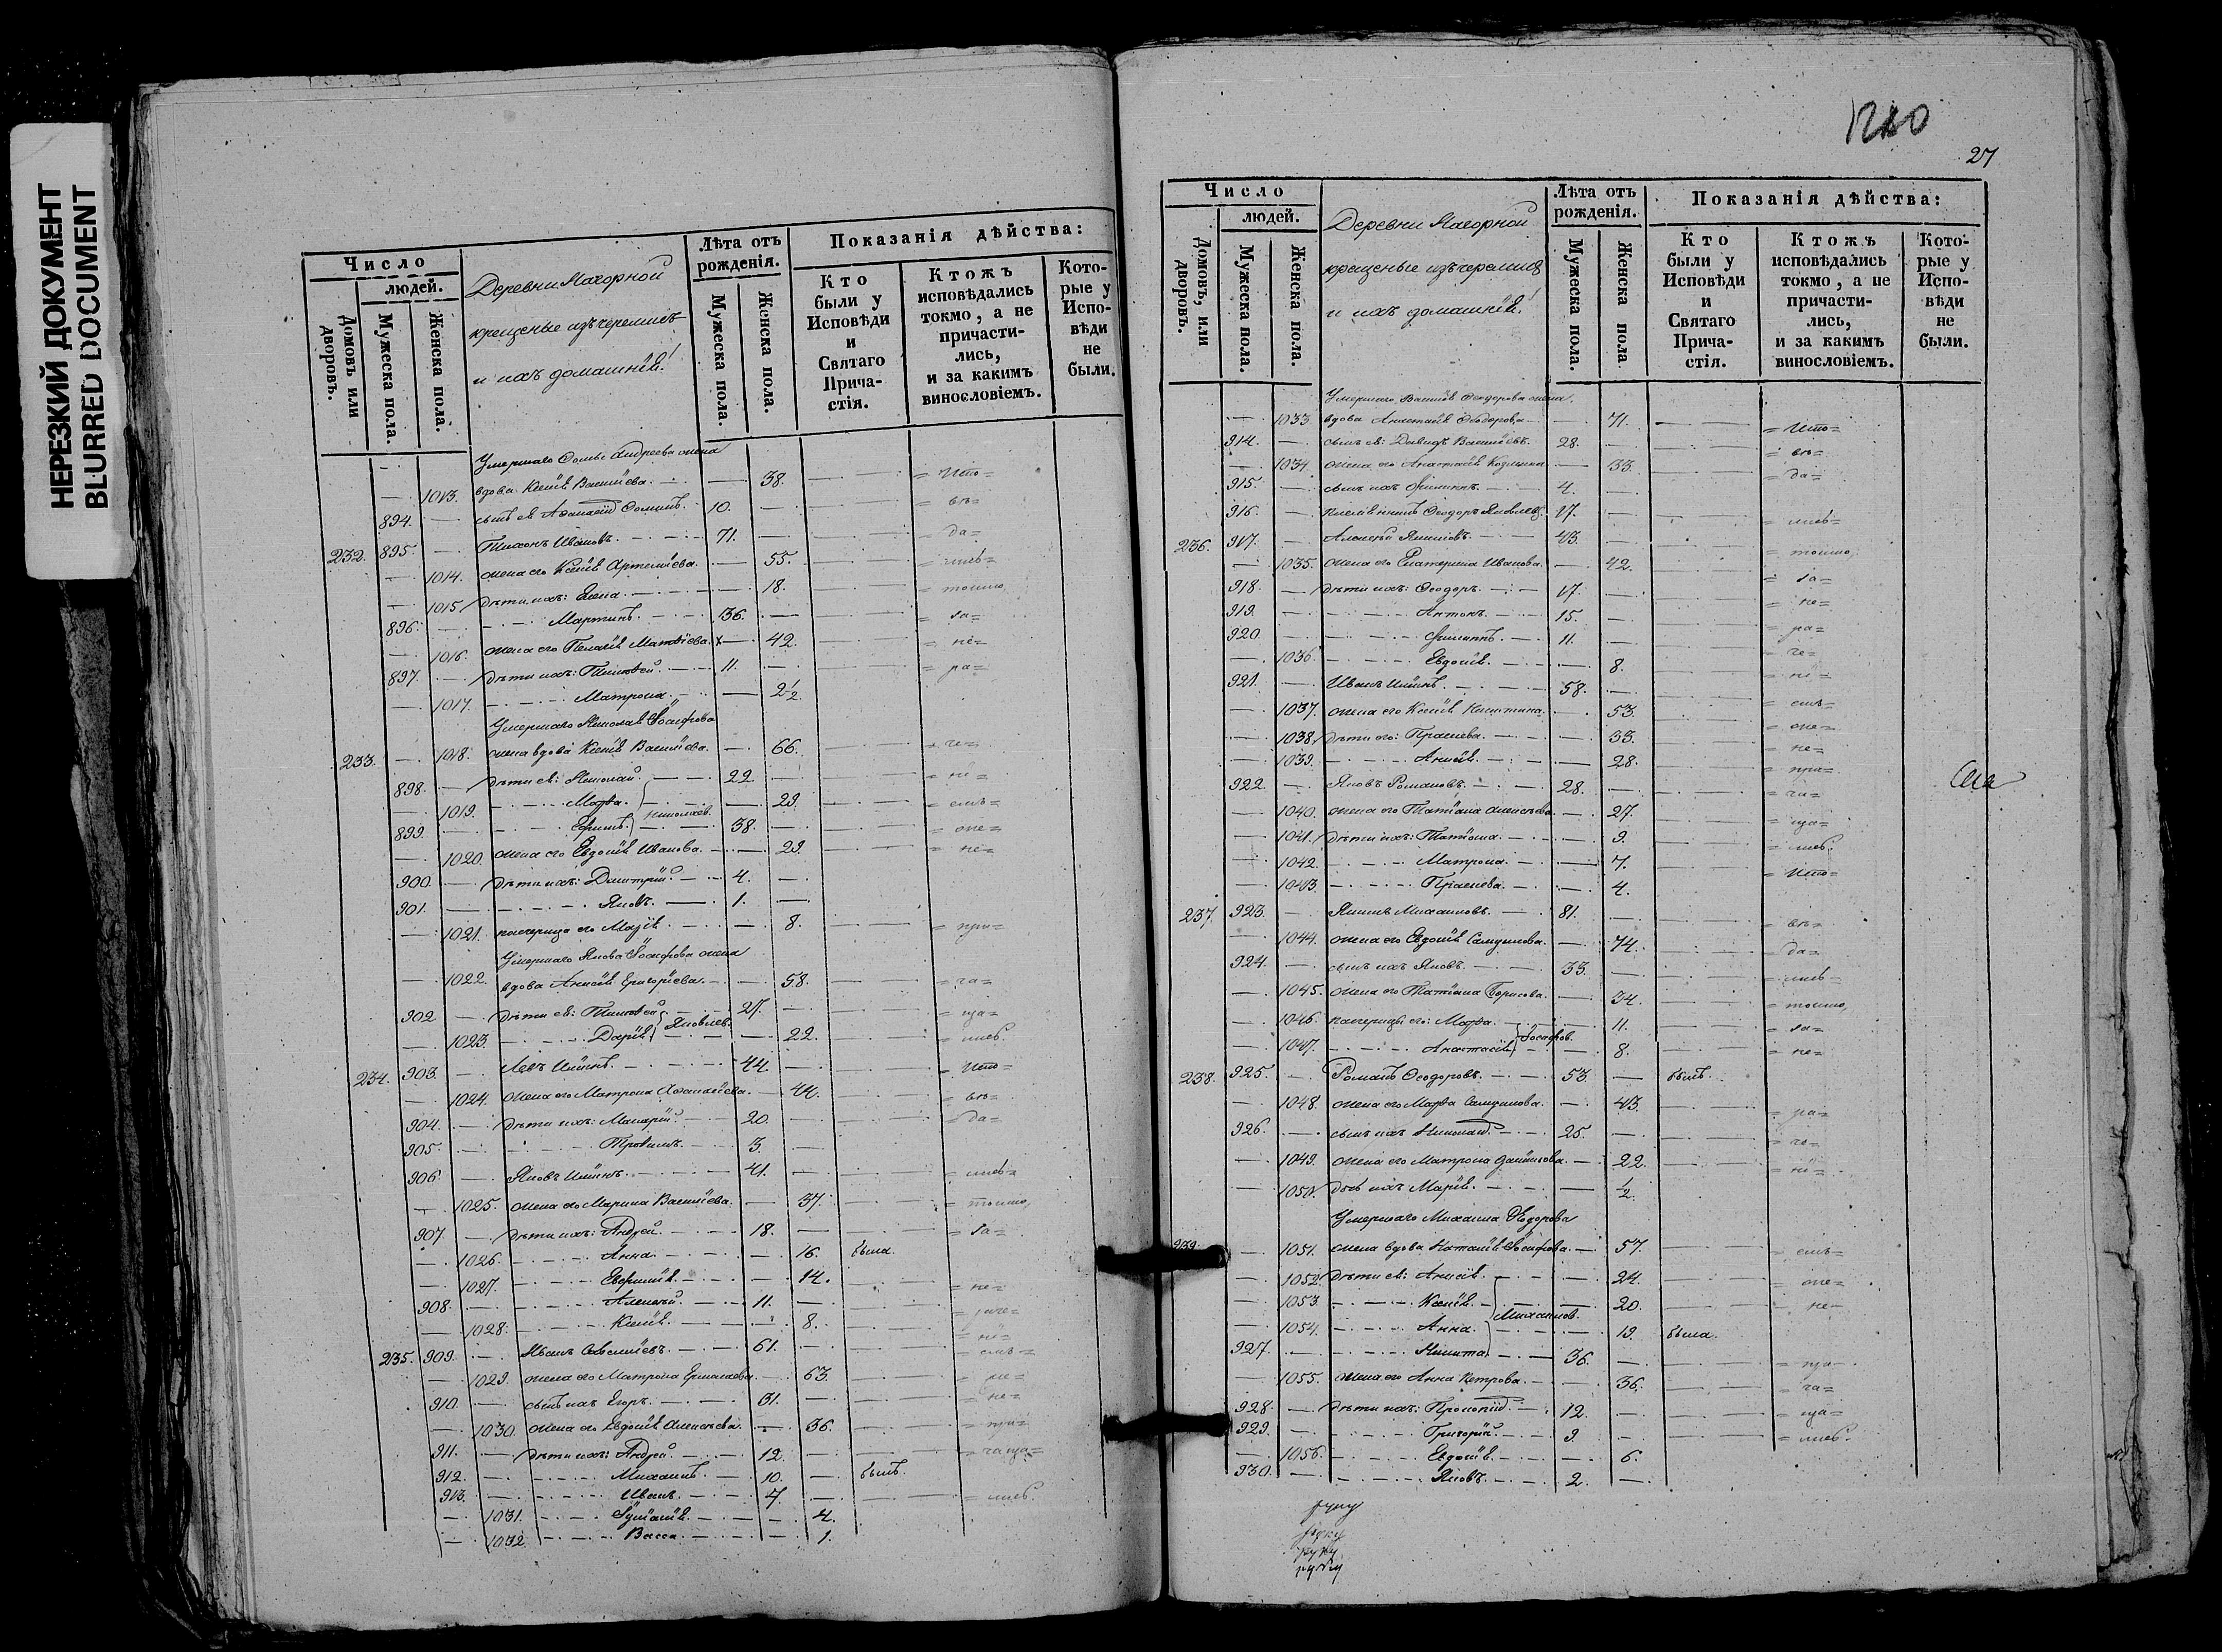 НЕРЕЗКИЙ ДОКУМЕНТ
BLURRED DOCUMENT
Число
людей.
Домовъ или дворовъ.
Мужеска пола.
Женска пола.
Деревни
крещеные изъ черемисъ
и ихъ домашніе
Лѣта отъ рожденія.
Мужеска пола.
Женска пола.
Показанія дѣйства:
Кто были у Исповѣди и Святаго Причастія.
Ктожъ исповѣдались токмо, а не причастились, и за какимъ винословіемъ.
Которые у Исповѣди не были.
Умершаго Ѳомы Андреева жена
1013. вдова Ксенія Васильева. 38. =Испо=
894. сынъ ея Аѳанасій Ѳоминъ. 10. =вѣ=
232. 895. Тихонъ Ивановъ. 71. =да=
1014. жена его Ксенія Артемьева. 55. =лись=
1015. дѣти ихъ: Елена. 18. =токмо,
896. Мартинъ. 36. =за=
1016. жена его Пелагія Матвѣева. 42. =не=
897. дѣти ихъ: Тимоѳей. 11. =ра=
1017. Матрона. 2 1/2
Умершаго Николая Іосифова
233. 1018. жена вдова Ксенія Васильева. 66. =че=
898. дѣти ея: Николай. 22. =ні=
1019. Марѳа. 29. =емъ=
Николаев.
899. Ефимъ. 38. =опе=
1020. жена его Евдокія Иванова. 29. =не=
900. дѣти ихъ: Дмитрій. 4.
901. Яковъ. 1.
1021. падчерица его Марія. 8. =при=
Умершаго Якова Іосифова жена
1022. вдова Анисія Григорьева. 58. =ча=
902 дѣти ея: Тимоѳей 27. =ща=
Яковлев.
1023. Дарія 22. =лись.
234. 903. Левъ Ильинъ. 44. =Испо=
1024. жена его Матрона Аѳанасьева. 44. =вѣ=
904. дѣти ихъ: Макарій. 20. =да=
905. Трофимъ. 3.
906. Яковъ Ильинъ. 41. =лись=
1025. жена его Марина Васильева. 37. =токмо,
907. дѣти ихъ: Андрей. 18. =за=
1026. Анна. 16. была.
1027. 14. =не=
908. Алексѣй. 11. =раче=
1028. Ксенія. 8. =ні=
235. 909. Иванъ Савельевъ. 61. =емъ=
1029. жена его Матрона Ермолаева. 63. =опе=
910. сынъ ихъ Егоръ. 31. =не=
1030. жена его Евдокія Алексѣева. 36. =при=
911. дѣти ихъ: Андрей. 12. =чаща=
912. Михаилъ. 10. былъ.
913. Иванъ. 7. =лись.
1031. Іуліанія. 4.
1032 Васса. 1.
27
Число
людей.
Домовъ, или дворовъ.
Мужеска пола.
Женска пола.
Деревни
крещеные изъ черемисъ
и ихъ домашніе
Лѣта отъ рожденія.
Мужеска пола.
Женска пола
Показанія дѣйства:
Кто были у Исповѣди и Святаго Причастія.
Ктожъ исповѣдались токмо, а не причастились, и за какимъ винословіемъ.
Которые у Исповѣди не были.
Умершаго Василія Ѳеодорова жена,
1033 вдова Анастасія Ѳеодорова 71. =Испо=
914. сынъ ея: Давидъ Васильевъ. 28. =вѣ=
1034 жена его Анастасія Козьмина 33. =да=
915. сынъ ихъ Филиппъ. 4.
916. племянникъ Ѳеодоръ Яковлевъ. 17. =лись=
236. 917. Алексѣй Якимовъ. 43. =токмо,
1035. жена его Екатерина Иванова. 42. =за=
918. дѣти ихъ: Ѳеодоръ. 17. =не=
919. Антонъ. 15. =ра=
920. Филиппъ. 11. =че=
1036. Евдокія. 8. =ні=
921. Иванъ Ильинъ. 58. =емъ=
1037. жена его Ксенія Никитина. 53. =опе=
1038. дѣти его: Прасковья. 33. =не=
1039. Анисія. 28. =при=
922. Яковъ Романовъ. 28. =ча=
1040. жена его Татіана Алексѣева. 27. =ща=
1041. дѣти ихъ: Татіана. 9. =лись.
1042. Матрона. 7. =Испо=
1043. Прасковья. 4.
237. 923. Якимъ Михаиловъ. 81. =вѣ=
1044. жена его Евдокія Самуилова. 74. =да=
924. сынъ ихъ Яковъ. 33. =лись=
1045. жена его Татіана Борисова. 34. =токмо,
1046. падчерицы его: Марѳа. 11. =за=
Іосифов.
1047. Анастасія 8. =не=
238. 925. Романъ Ѳеодоровъ. 53. былъ.
1048. жена его Марѳа Самуилова. 43. =ра=
926. сынъ ихъ Николай. 25. =че=
1049. жена его Матрона Даниилова. 22. =ні=
1050. дочь ихъ Марія. 1/2.
Умершаго Михаила Ѳедорова
239. 1051. жена вдова Наталія Іосифова. 57. =емъ=
1052. дѣти ея: Анисія. 24. =опе=
1053. Ксенія. 20. =не=
Михаилов.
1054. Анна. 19. была.
927. Никита 36. =при=
1055. жена его Анна Петрова. 36. =ча=
928. дѣти ихъ: Прокопій. 12. =ща=
929. Григорій. 9. =лись.
1056. Евдокія. 6.
930. Яковъ. 2.
руку
руку